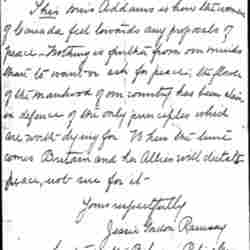 This Miss Addams is how the women
of Canada feel towards any proposals of
peace. Nothing is further from our minds
than to want or ask for peace, the flower
of the manhood of our country has been slain
in defence of the only principles which
are worth dying for. When the time
comes Britain and her Allies will dictate
peace, not sue for it -
Yours respectfully
Jessie Gordon Ramsay